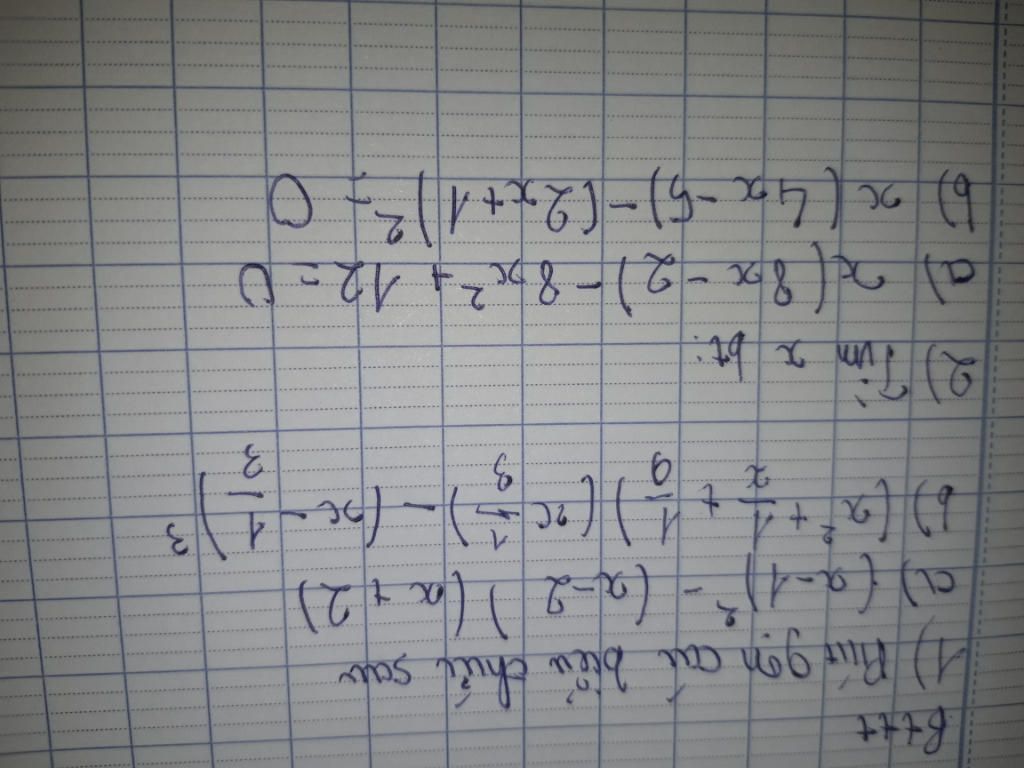 Bttt
1) Rút gọn các biểu thức sau
a) (x-1)² - (x-2)(x+2)
b) (x² + 1/x + 1/9)(x 1/3) - (x - 1/3)³
2) Tìm x bt:
a) x(8x-2) - 8x² + 12 = 0
b) x(4x-5) - (2x+1)² = 0